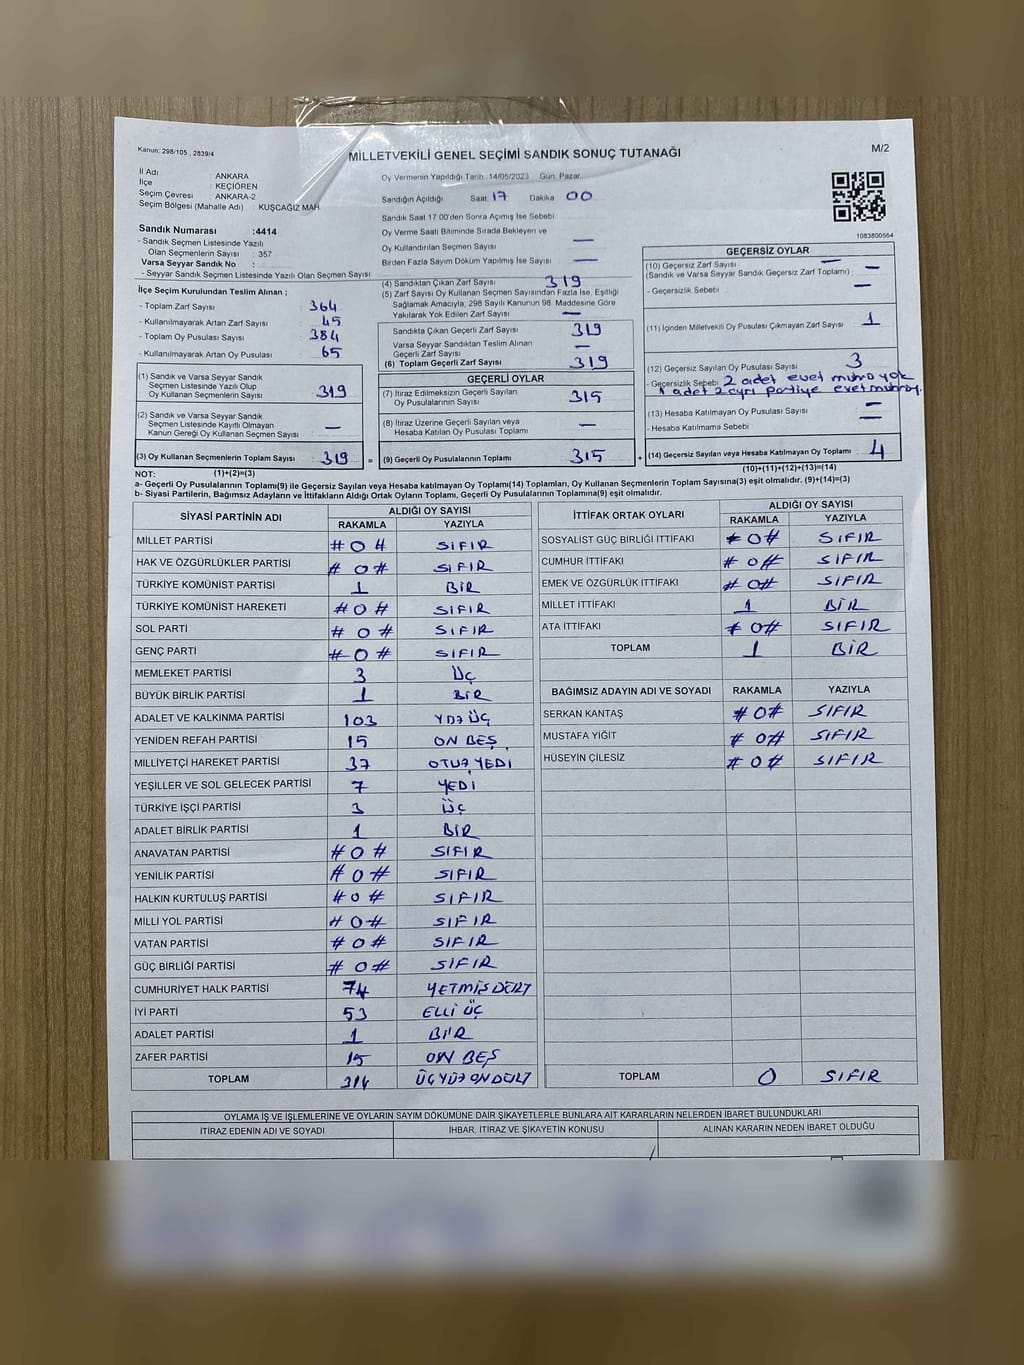 Kanun: 298/105 , 2839/4
MİLLETVEKİLİ GENEL SEÇİMİ SANDIK SONUÇ TUTANAĞI
M/2
İl Adı : ANKARA
İlçe : KEÇİÖREN
Seçim Çevresi : ANKARA-2
Seçim Bölgesi (Mahalle Adı) : KUŞCAĞIZ MAH
Sandık Numarası :4414
- Sandık Seçmen Listesinde Yazılı
Olan Seçmenlerin Sayısı : 357
Varsa Seyyar Sandık No :
- Seyyar Sandık Seçmen Listesinde Yazılı Olan Seçmen Sayısı:
Oy Vermenin Yapıldığı Tarih: 14/05/2023 Gün: Pazar
Sandığın Açıldığı Saat 17 Dakika 00
Sandık Saat 17:00'den Sonra Açımış İse Sebebi :
Oy Verme Saati Bitiminde Sırada Bekleyen ve
Oy Kullandırılan Seçmen Sayısı : —
Birden Fazla Sayım Döküm Yapılmış İse Sayısı : —
1083800564
İlçe Seçim Kurulundan Teslim Alınan ;
- Toplam Zarf Sayısı : 364
- Kullanılmayarak Artan Zarf Sayısı : 45
- Toplam Oy Pusulası Sayısı : 384
- Kullanılmayarak Artan Oy Pusulası : 65
(1) Sandık ve Varsa Seyyar Sandık
Seçmen Listesinde Yazılı Olup
Oy Kullanan Seçmenlerin Sayısı : 319
(2) Sandık ve Varsa Seyyar Sandık
Seçmen Listesinde Kayıtlı Olmayan
Kanun Gereği Oy Kullanan Seçmen Sayısı : —
(3) Oy Kullanan Seçmenlerin Toplam Sayısı : 319 =
(4) Sandıktan Çıkan Zarf Sayısı : 319
(5) Zarf Sayısı Oy Kullanan Seçmen Sayısından Fazla İse, Eşitliği
Sağlamak Amacıyla, 298 Sayılı Kanunun 98. Maddesine Göre
Yakılarak Yok Edilen Zarf Sayısı: —
Sandıkta Çıkan Geçerli Zarf Sayısı : 319
Varsa Seyyar Sandıktan Teslim Alınan
Geçerli Zarf Sayısı : —
(6) Toplam Geçerli Zarf Sayısı : 319
GEÇERLİ OYLAR
(7) İtiraz Edilmeksizin Geçerli Sayılan
Oy Pusulalarının Sayısı : 315
(8) İtiraz Üzerine Geçerli Sayılan veya
Hesaba Katılan Oy Pusulası Toplamı : —
(9) Geçerli Oy Pusulalarının Toplamı : 315 +
GEÇERSİZ OYLAR
(10) Geçersiz Zarf Sayısı : —
(Sandık ve Varsa Seyyar Sandık Geçersiz Zarf Toplamı) —
- Geçersizlik Sebebi : —
(11) İçinden Milletvekili Oy Pusulası Çıkmayan Zarf Sayısı : 1
(12) Geçersiz Sayılan Oy Pusulası Sayısı : 3
- Geçersizlik Sebebi : 2 adet evet mührü yok
1 adet 2 ayrı partiye evet
(13) Hesaba Katılmayan Oy Pusulası Sayısı : —
- Hesaba Katılmama Sebebi : —
(14) Geçersiz Sayılan veya Hesaba Katılmayan Oy Toplamı : 4
NOT: (1)+(2)=(3)
(10)+(11)+(12)+(13)=(14)
a- Geçerli Oy Pusulalarının Toplamı(9) ile Geçersiz Sayılan veya Hesaba Katılmayan Oy Toplamı(14) Toplamları, Oy Kullanan Seçmenlerin Toplam Sayısına(3) eşit olmalıdır. (9)+(14)=(3)
b- Siyasi Partilerin, Bağımsız Adayların ve İttifakların Aldığı Ortak Oyların Toplamı, Geçerli Oy Pusulalarının Toplamına(9) eşit olmalıdır.
SİYASİ PARTİNİN ADI
ALDIĞI OY SAYISI
RAKAMLA YAZIYLA
MİLLET PARTİSİ #0# SIFIR
HAK VE ÖZGÜRLÜKLER PARTİSİ #0# SIFIR
TÜRKİYE KOMÜNİST PARTİSİ 1 BİR
TÜRKİYE KOMÜNİST HAREKETİ #0# SIFIR
SOL PARTİ #0# SIFIR
GENÇ PARTİ #0# SIFIR
MEMLEKET PARTİSİ 3 ÜÇ
BÜYÜK BİRLİK PARTİSİ 1 BİR
ADALET VE KALKINMA PARTİSİ 103 YÜZ ÜÇ
YENİDEN REFAH PARTİSİ 15 ON BEŞ
MİLLİYETÇİ HAREKET PARTİSİ 37 OTUZ YEDİ
YEŞİLLER VE SOL GELECEK PARTİSİ 7 YEDİ
TÜRKİYE İŞÇİ PARTİSİ 3 ÜÇ
ADALET BİRLİK PARTİSİ 1 BİR
ANAVATAN PARTİSİ #0# SIFIR
YENİLİK PARTİSİ #0# SIFIR
HALKIN KURTULUŞ PARTİSİ #0# SIFIR
MİLLİ YOL PARTİSİ #0# SIFIR
VATAN PARTİSİ #0# SIFIR
GÜÇ BİRLİĞİ PARTİSİ #0# SIFIR
CUMHURİYET HALK PARTİSİ 74 YETMİŞ DÖRT
İYİ PARTİ 53 ELLİ ÜÇ
ADALET PARTİSİ 1 BİR
ZAFER PARTİSİ 15 ON BEŞ
TOPLAM 314 ÜÇYÜZ ONDÖRT
İTTİFAK ORTAK OYLARI
ALDIĞI OY SAYISI
RAKAMLA YAZIYLA
SOSYALİST GÜÇ BİRLİĞİ İTTİFAKI #0# SIFIR
CUMHUR İTTİFAKI #0# SIFIR
EMEK VE ÖZGÜRLÜK İTTİFAKI #0# SIFIR
MİLLET İTTİFAKI 1 BİR
ATA İTTİFAKI #0# SIFIR
TOPLAM 1 BİR
BAĞIMSIZ ADAYIN ADI VE SOYADI RAKAMLA YAZIYLA
SERKAN KANTAŞ #0# SIFIR
MUSTAFA YİĞİT #0# SIFIR
HÜSEYİN ÇİLESİZ #0# SIFIR
TOPLAM 0 SIFIR
OYLAMA İŞ VE İŞLEMLERİNE VE OYLARIN SAYIM DÖKÜMÜNE DAİR ŞİKAYETLERLE BUNLARA AİT KARARLARIN NELERDEN İBARET BULUNDUKLARI
İTİRAZ EDENİN ADI VE SOYADI İHBAR, İTİRAZ VE ŞİKAYETİN KONUSU ALINAN KARARIN NEDEN İBARET OLDUĞU